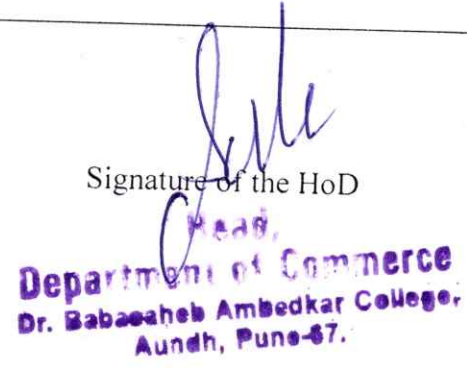 Signature of the HoD
Head,
Department of Commerce
Dr. Babasaheb Ambedkar College,
Aundh, Pune-67.